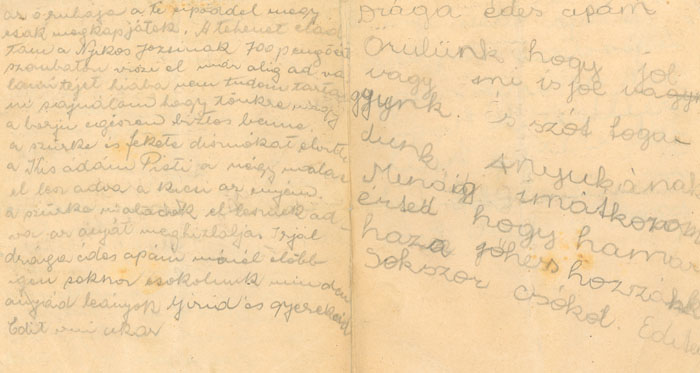 az óruhsza a te cipődel megy
csak megkapjátok. A tehenet elad
tam a Nyikos Jozsinak 700 pengőért
szombaton viszi el már alig ad va
lami tejet hiába nem tudom tarta
ni sajnálom hogy tönkre megy
a borju egészen biztos benne
a szürke is fekete disznókat elvitte
a Kis ádám Pisti a négy malac
el lesz adva a kicsi az enyém
a szürke malacok el lesznek ad-
va az anyát meghizlalja. Irjál
drága édes apám minél előbb
igen sokszor csókolunk minden
anyád leányok Girid és gyerekeid
Edit
Drága édes apám
Örülünk hogy jól
vagy mi is jól va
gyunk. is szót foga-
dunk. Anyukának
Mindig imátkozom
érted hogy hamar
haza jöhes hozzánk
Sokszor csókol. Editke